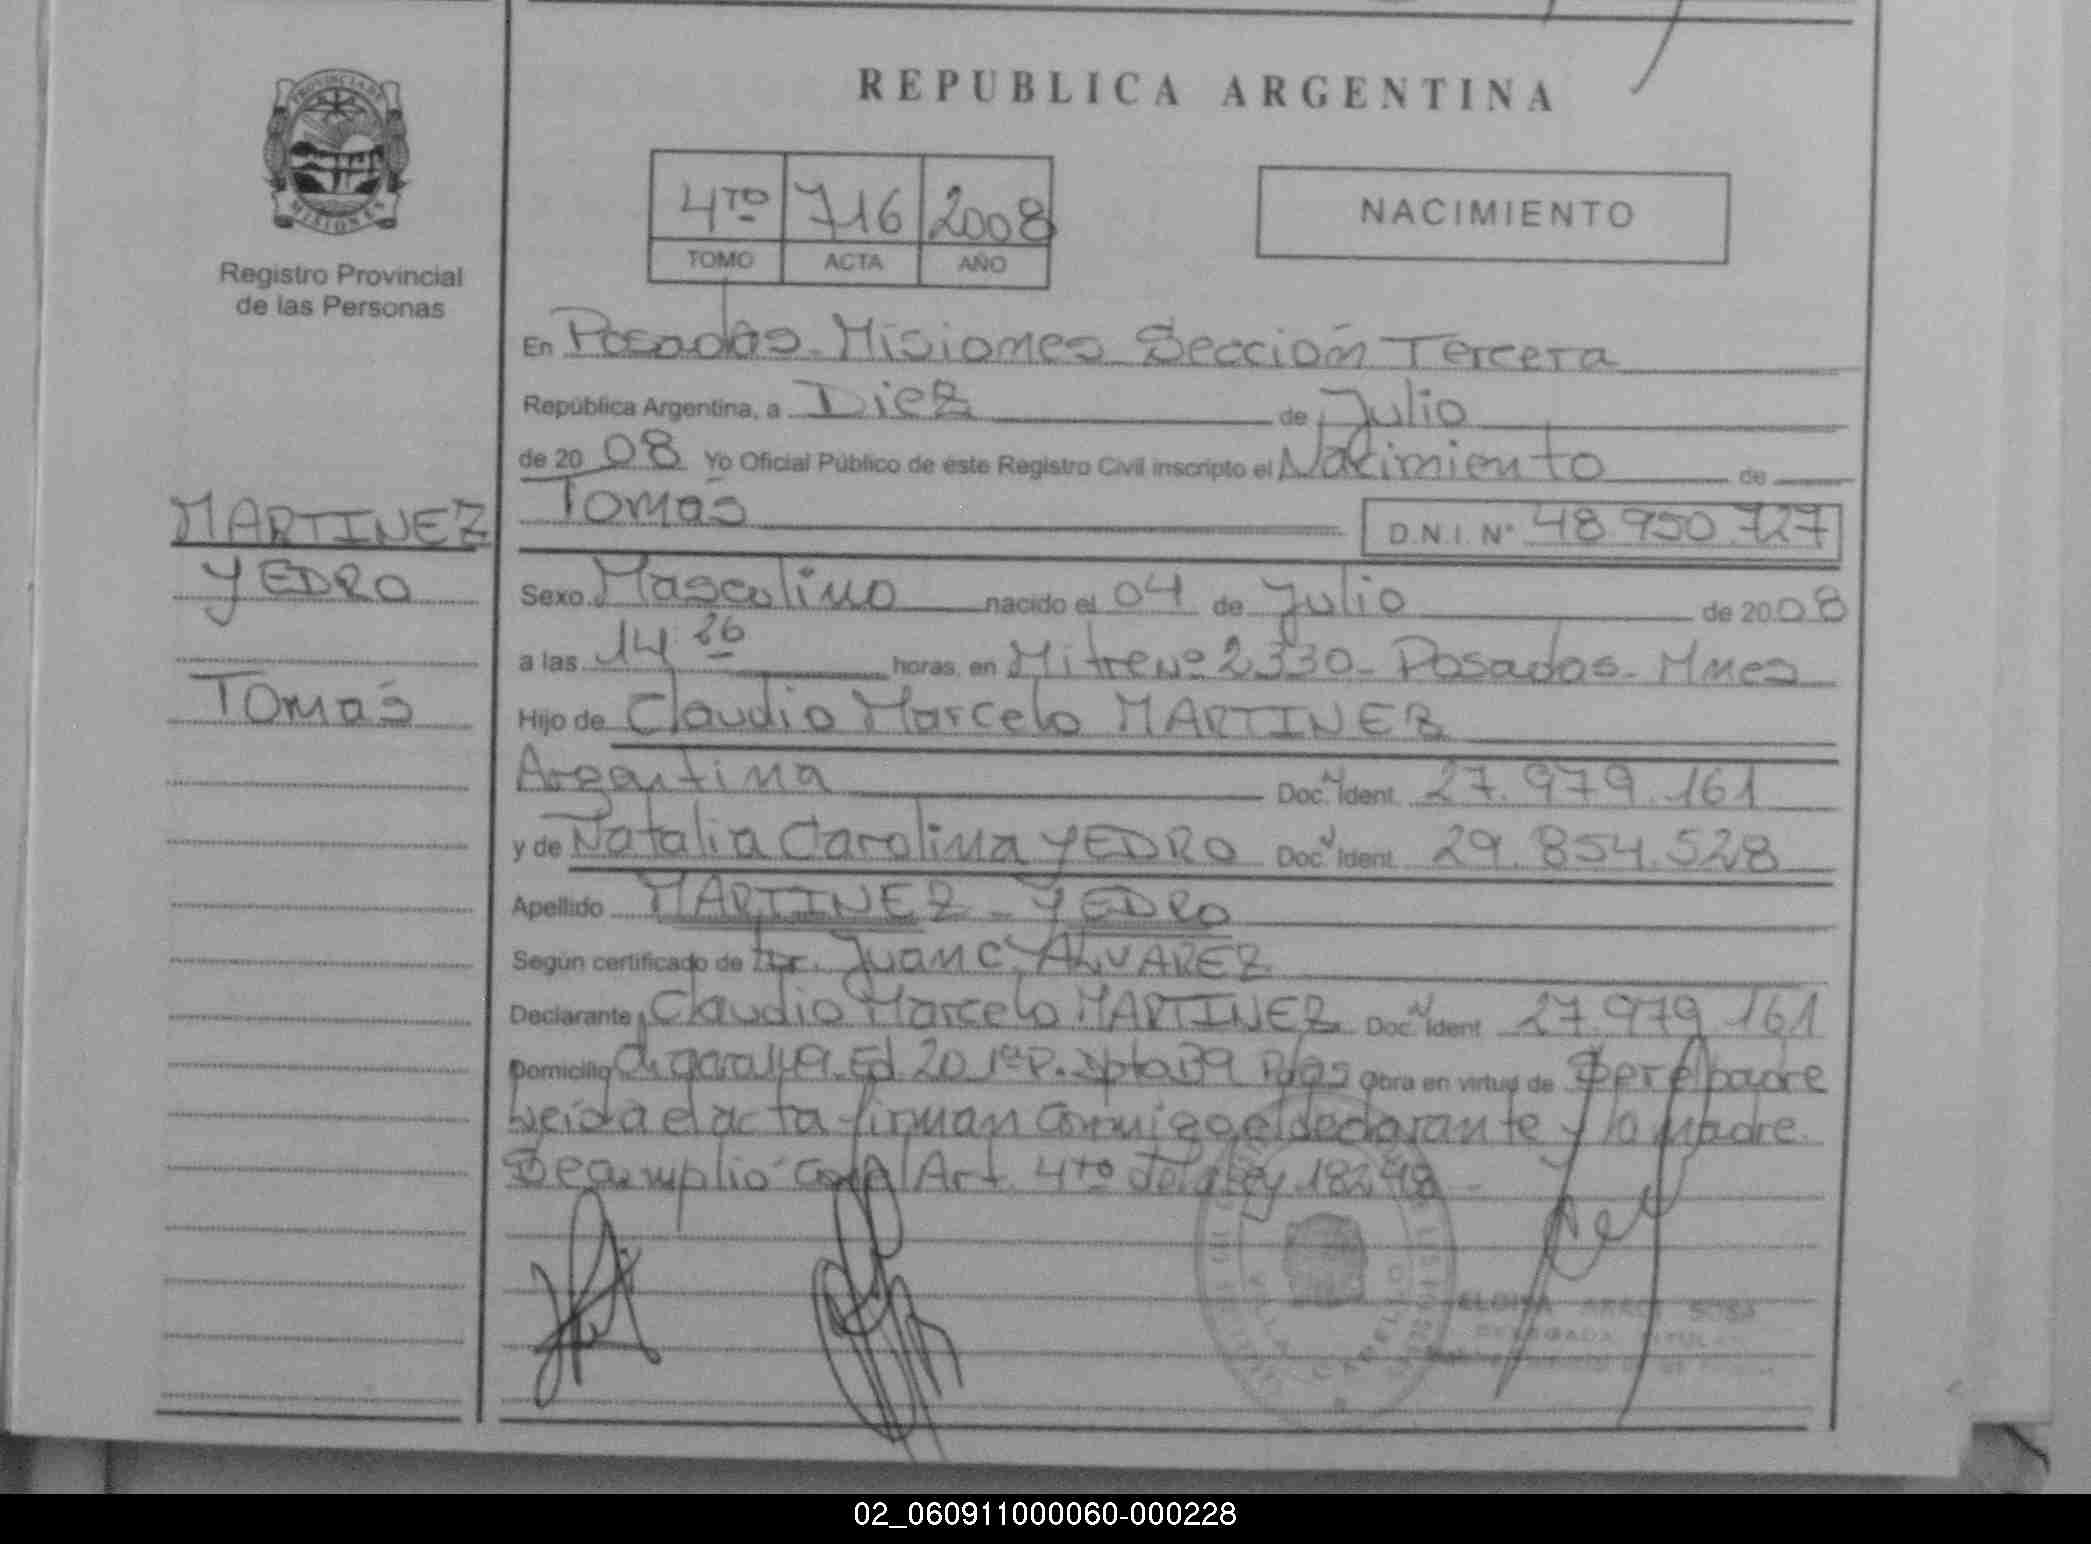 REPUBLICA ARGENTINA
PROVINCIA DE
MISIONES
Registro Provincial
de las Personas
4TO 716 2008
TOMO ACTA AÑO
NACIMIENTO
En Posadas - Misiones Sección Tercera
República Argentina, a Diez de Julio
de 20 08 Yo Oficial Público de éste Registro Civil inscripto el Nacimiento de
Tomás D.N.I. Nº 48.950.727
MARTINEZ
YEDRO
Tomás
Sexo Masculino nacido el 04 de Julio de 20 08
a las 14 26 horas, en Mitre nº 2330 - Posadas - Mnes
Hijo de Claudio Marcelo MARTINEZ
Argentina Doc. N Ident. 27.979.161
y de Natalia Carolina YEDRO Doc. N Ident. 29.854.528
Apellido MARTINEZ - YEDRO
Según certificado de Dr. Juan C. ALVAREZ
Declarante Claudio Marcelo MARTINEZ Doc. N Ident. 27.979.161
Domicilio Ed 20 1º P. Dpto Pdas Obra en virtud de Ser el padre
Leída el acta firman conmigo el declarante y la madre.
Se cumplió con el Art. 4to de la ley 18248 -
VILLA CABELLO
SOSA
DELEGADA TITULAR
02_060911000060-000228